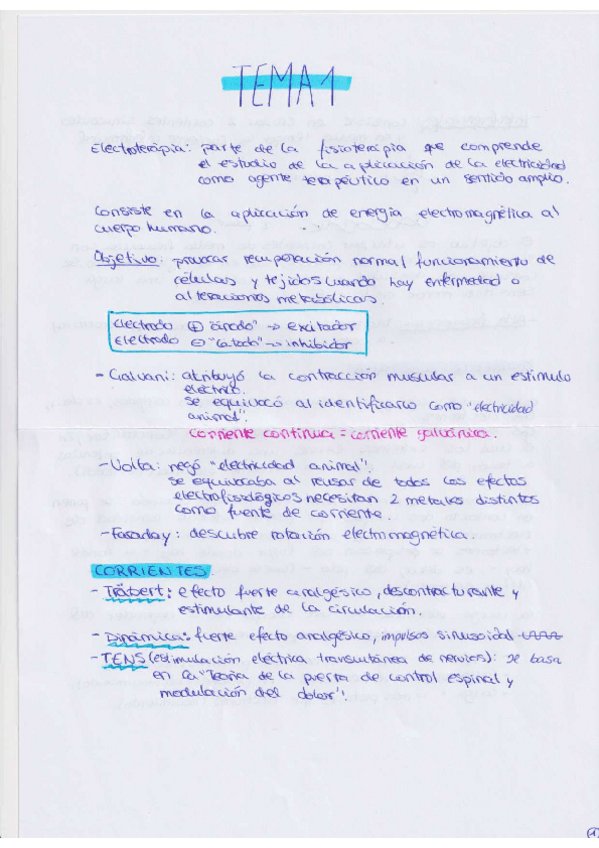 TEMA 1
Electroterapia: parte de la fisioterapia que comprende
el estudio de la aplicación de la electricidad
como agente terapéutico en un sentido amplio.
Consiste en la aplicación de energía electromagnética al
cuerpo humano.
Objetivo: provocar recuperación normal funcionamiento de
células y tejidos cuando hay enfermedad o
alteraciones metabólicas.
Electrodo ⊕ "ánodo" → excitador
Electrodo ⊖ "catodo" → inhibidor
- Galvani: atribuyó la contracción muscular a un estímulo
eléctrico.
Se equivocó al identificarlo como "electricidad
animal".
Corriente continua = corriente galvánica.
- Volta: negó "electricidad animal".
Se equivocaba al pensar de todos los efectos
electrofisiológicos necesitan 2 metales distintos
como fuente de corriente.
- Faraday: descubre rotación electromagnética.
CORRIENTES
- Träbert: efecto fuerte analgésico, descontracturante y
estimulante de la circulación.
- Dinámica: fuerte efecto analgésico, impulsos sinusoidal
- TENS (estimulación eléctrica transcutánea de nervios): se basa
en la "Teoría de la puerta de control espinal y
modulación del dolor".
1